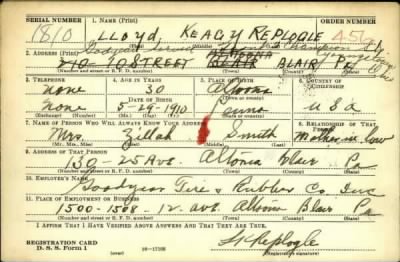 SERIAL NUMBER 1. NAME (Print) ORDER NUMBER
1810 LLOYD KEAGY REPLOGLE 456
(First) (Middle) (Last)
2. ADDRESS (Print)
Goodyear Service Champion
710 - 70 STREET ALTOONA BLAIR BLAIR Pa
(Number and street or R. F. D. number) (Town) (County) (State)
3. TELEPHONE 4. AGE IN YEARS 5. PLACE OF BIRTH 6. COUNTRY OF CITIZENSHIP
none 30 Altoona
(Town or county)
DATE OF BIRTH
none 5-29-1910 Penna U S A
7. NAME OF PERSON WHO WILL ALWAYS KNOW YOUR ADDRESS 8. RELATIONSHIP OF THAT PERSON
Mrs. Zillah Smith Mother in law
(Mr., Mrs., Miss) (First) (Middle) (Last)
9. ADDRESS OF THAT PERSON
130 - 25 Ave. Altoona Blair Pa
(Number and street or R. F. D. number) (Town) (County) (State)
10. EMPLOYER'S NAME
Goodyear Tire & Rubber Co. Inc
11. PLACE OF EMPLOYMENT OR BUSINESS
1500-1508-12 ave. Altoona Blair Pa
(Number and street or R. F. D. number) (Town) (County) (State)
I AFFIRM THAT I HAVE VERIFIED ABOVE ANSWERS AND THAT THEY ARE TRUE.
REGISTRATION CARD
D. S. S. Form 1 16-17105 LK Replogle